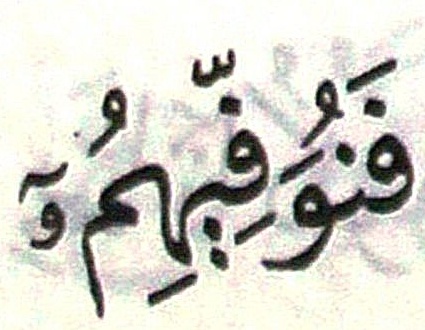 فَنُوَفِّيهِمُۥٓ